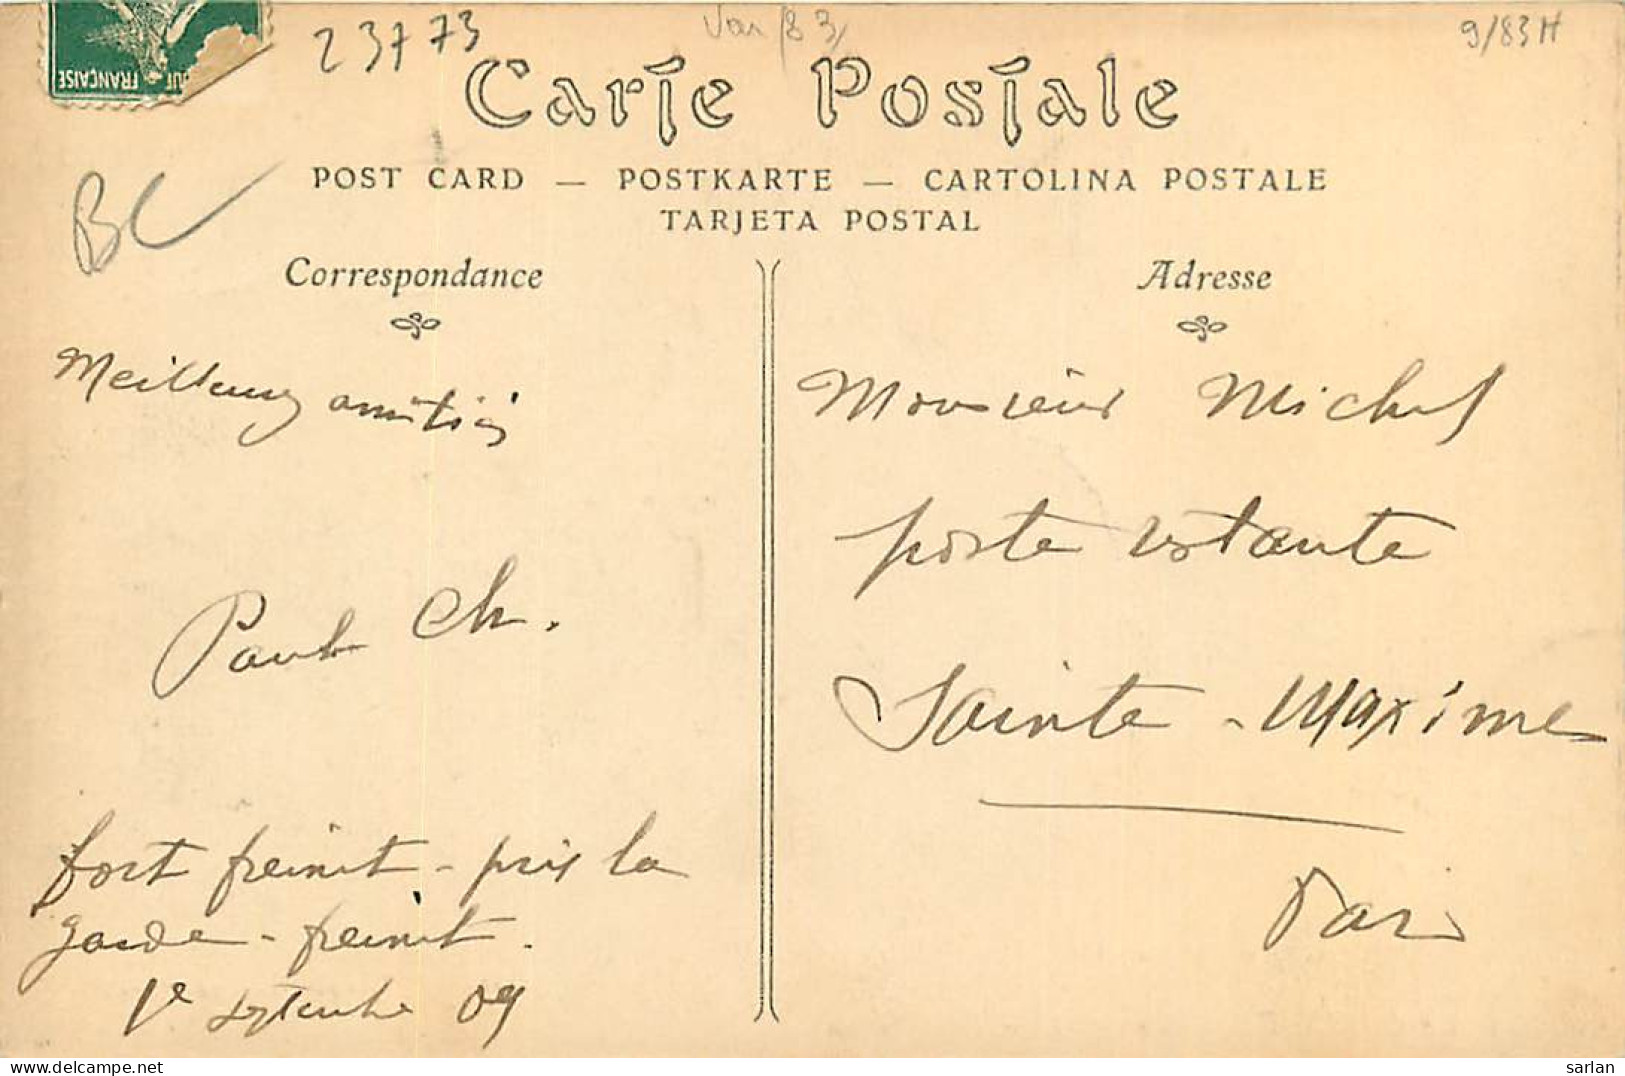 RÉPUBLIQUE FRANÇAISE
23773
Var 83
9/83H
Carte Postale
POST CARD — POSTKARTE — CARTOLINA POSTALE
TARJETA POSTAL
BC
Correspondance
Meilleures amitiés
Paul Ch.
fort freinet - près la
garde - freinet.
1e septembre 09
Adresse
Monsieur Michel
poste restante
Sainte - Maxime
Var
sarlan
delcampe.net